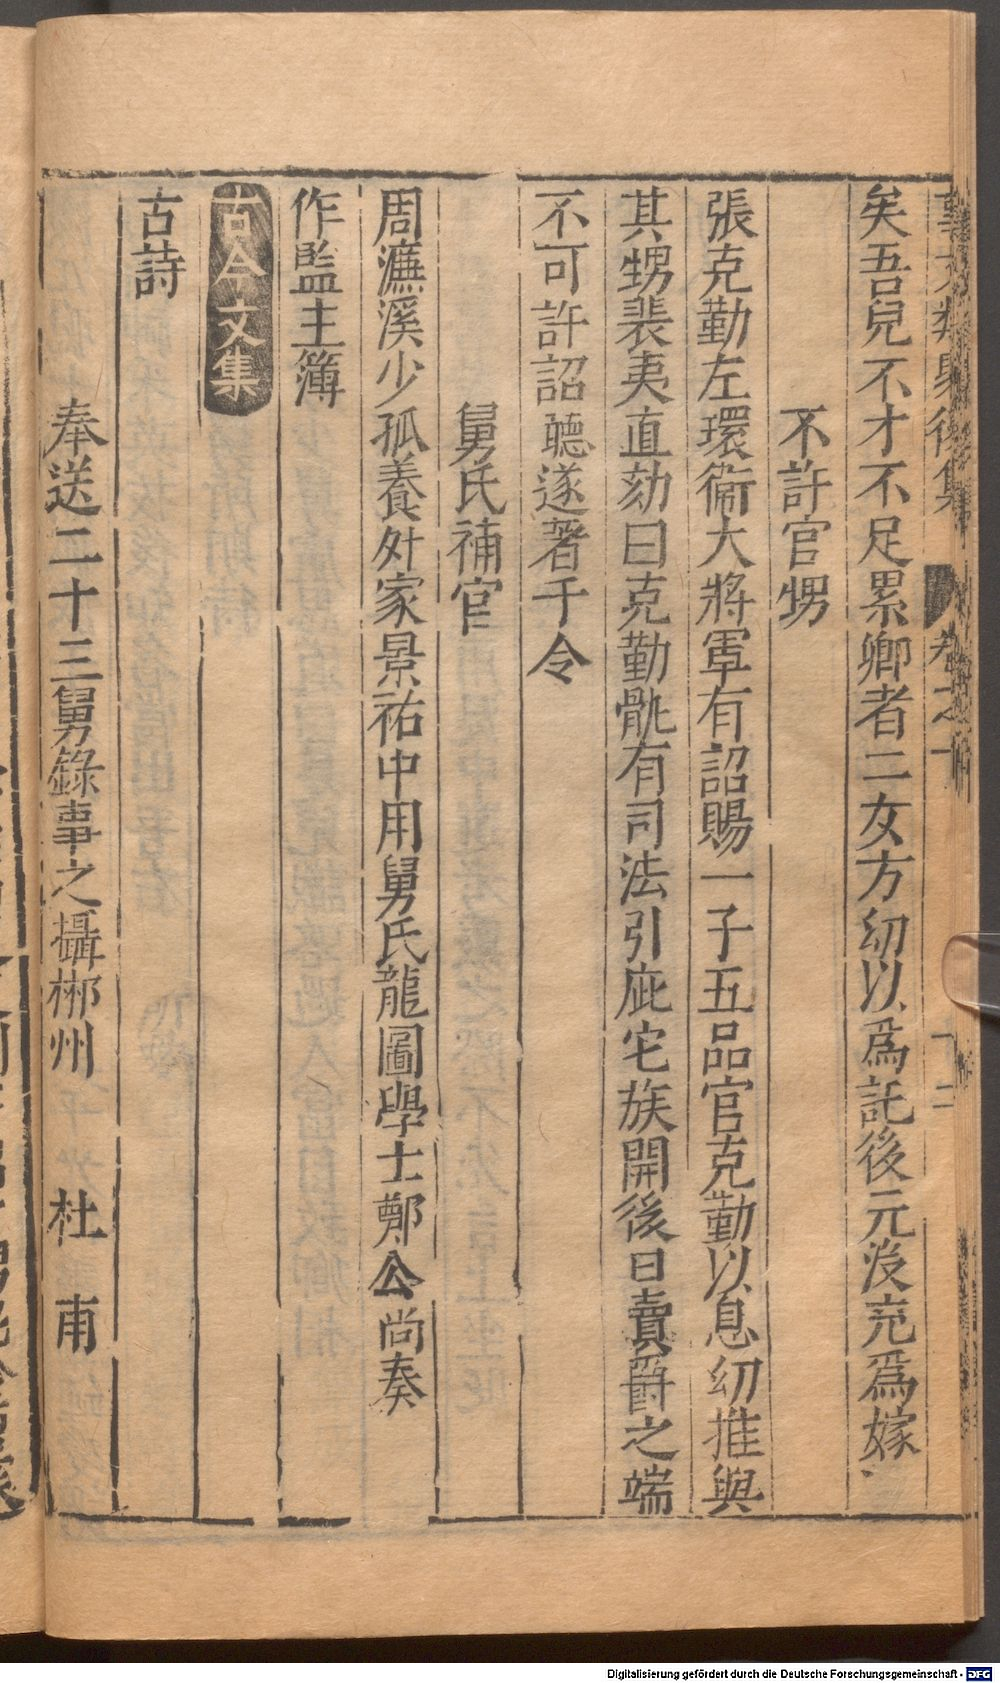 事文類聚後集 卷之十 十二
矣吾兒不才不足累卿者二女方幼以爲託後元沒充爲嫁
不許官甥
張克勤左環衞大將軍有詔賜一子五品官克勤以息幼推與
其甥裴夷直劾曰克勤骩有司法引庇宅族開後日賣爵之端
不可許詔聽遂著于令
舅氏補官
周濂溪少孤養外家景祐中用舅氏龍圖學士鄭公尚奏
作監主簿
古今文集
古詩
奉送二十三舅錄事之攝郴州 杜甫
Digitalisierung gefördert durch die Deutsche Forschungsgemeinschaft - DFG